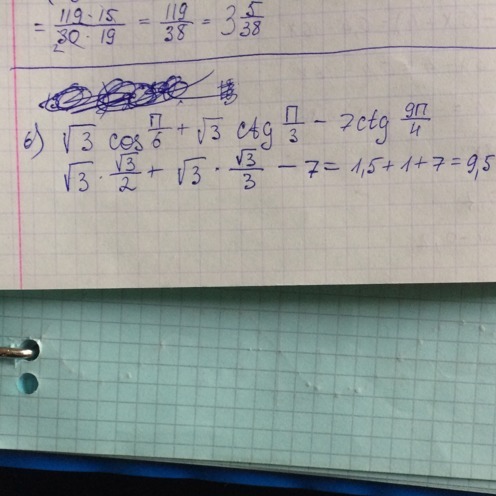 = \frac{119 \cdot 15}{30 \cdot 19} = \frac{119}{38} = 3\frac{5}{38}
2
б) √3 cos π/6 + √3 ctg π/3 − 7ctg 9π/4
√3 · √3/2 + √3 · √3/3 − 7 = 1,5 + 1 + 7 = 9,5